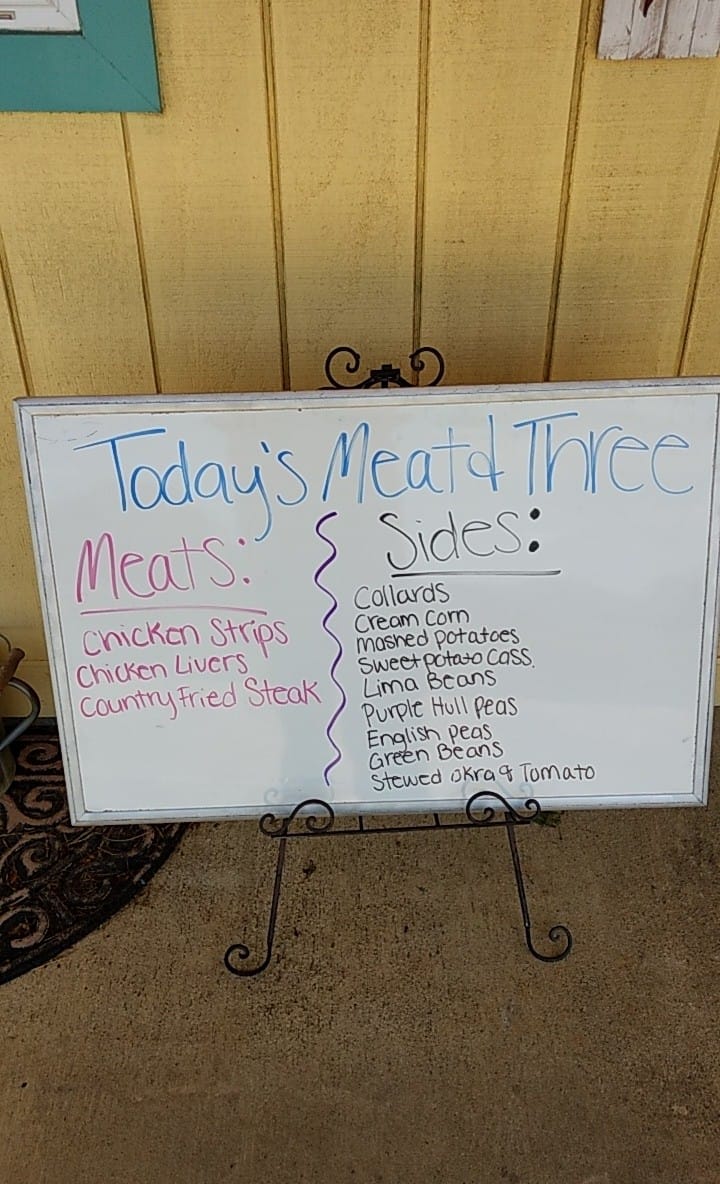 Today's Meat & Three
Meats:
Chicken Strips
Chicken Livers
Country Fried Steak
Sides:
Collards
Cream Corn
mashed potatoes
Sweet potato Cass.
Lima Beans
Purple Hull Peas
English peas
Green Beans
Stewed okra & Tomato